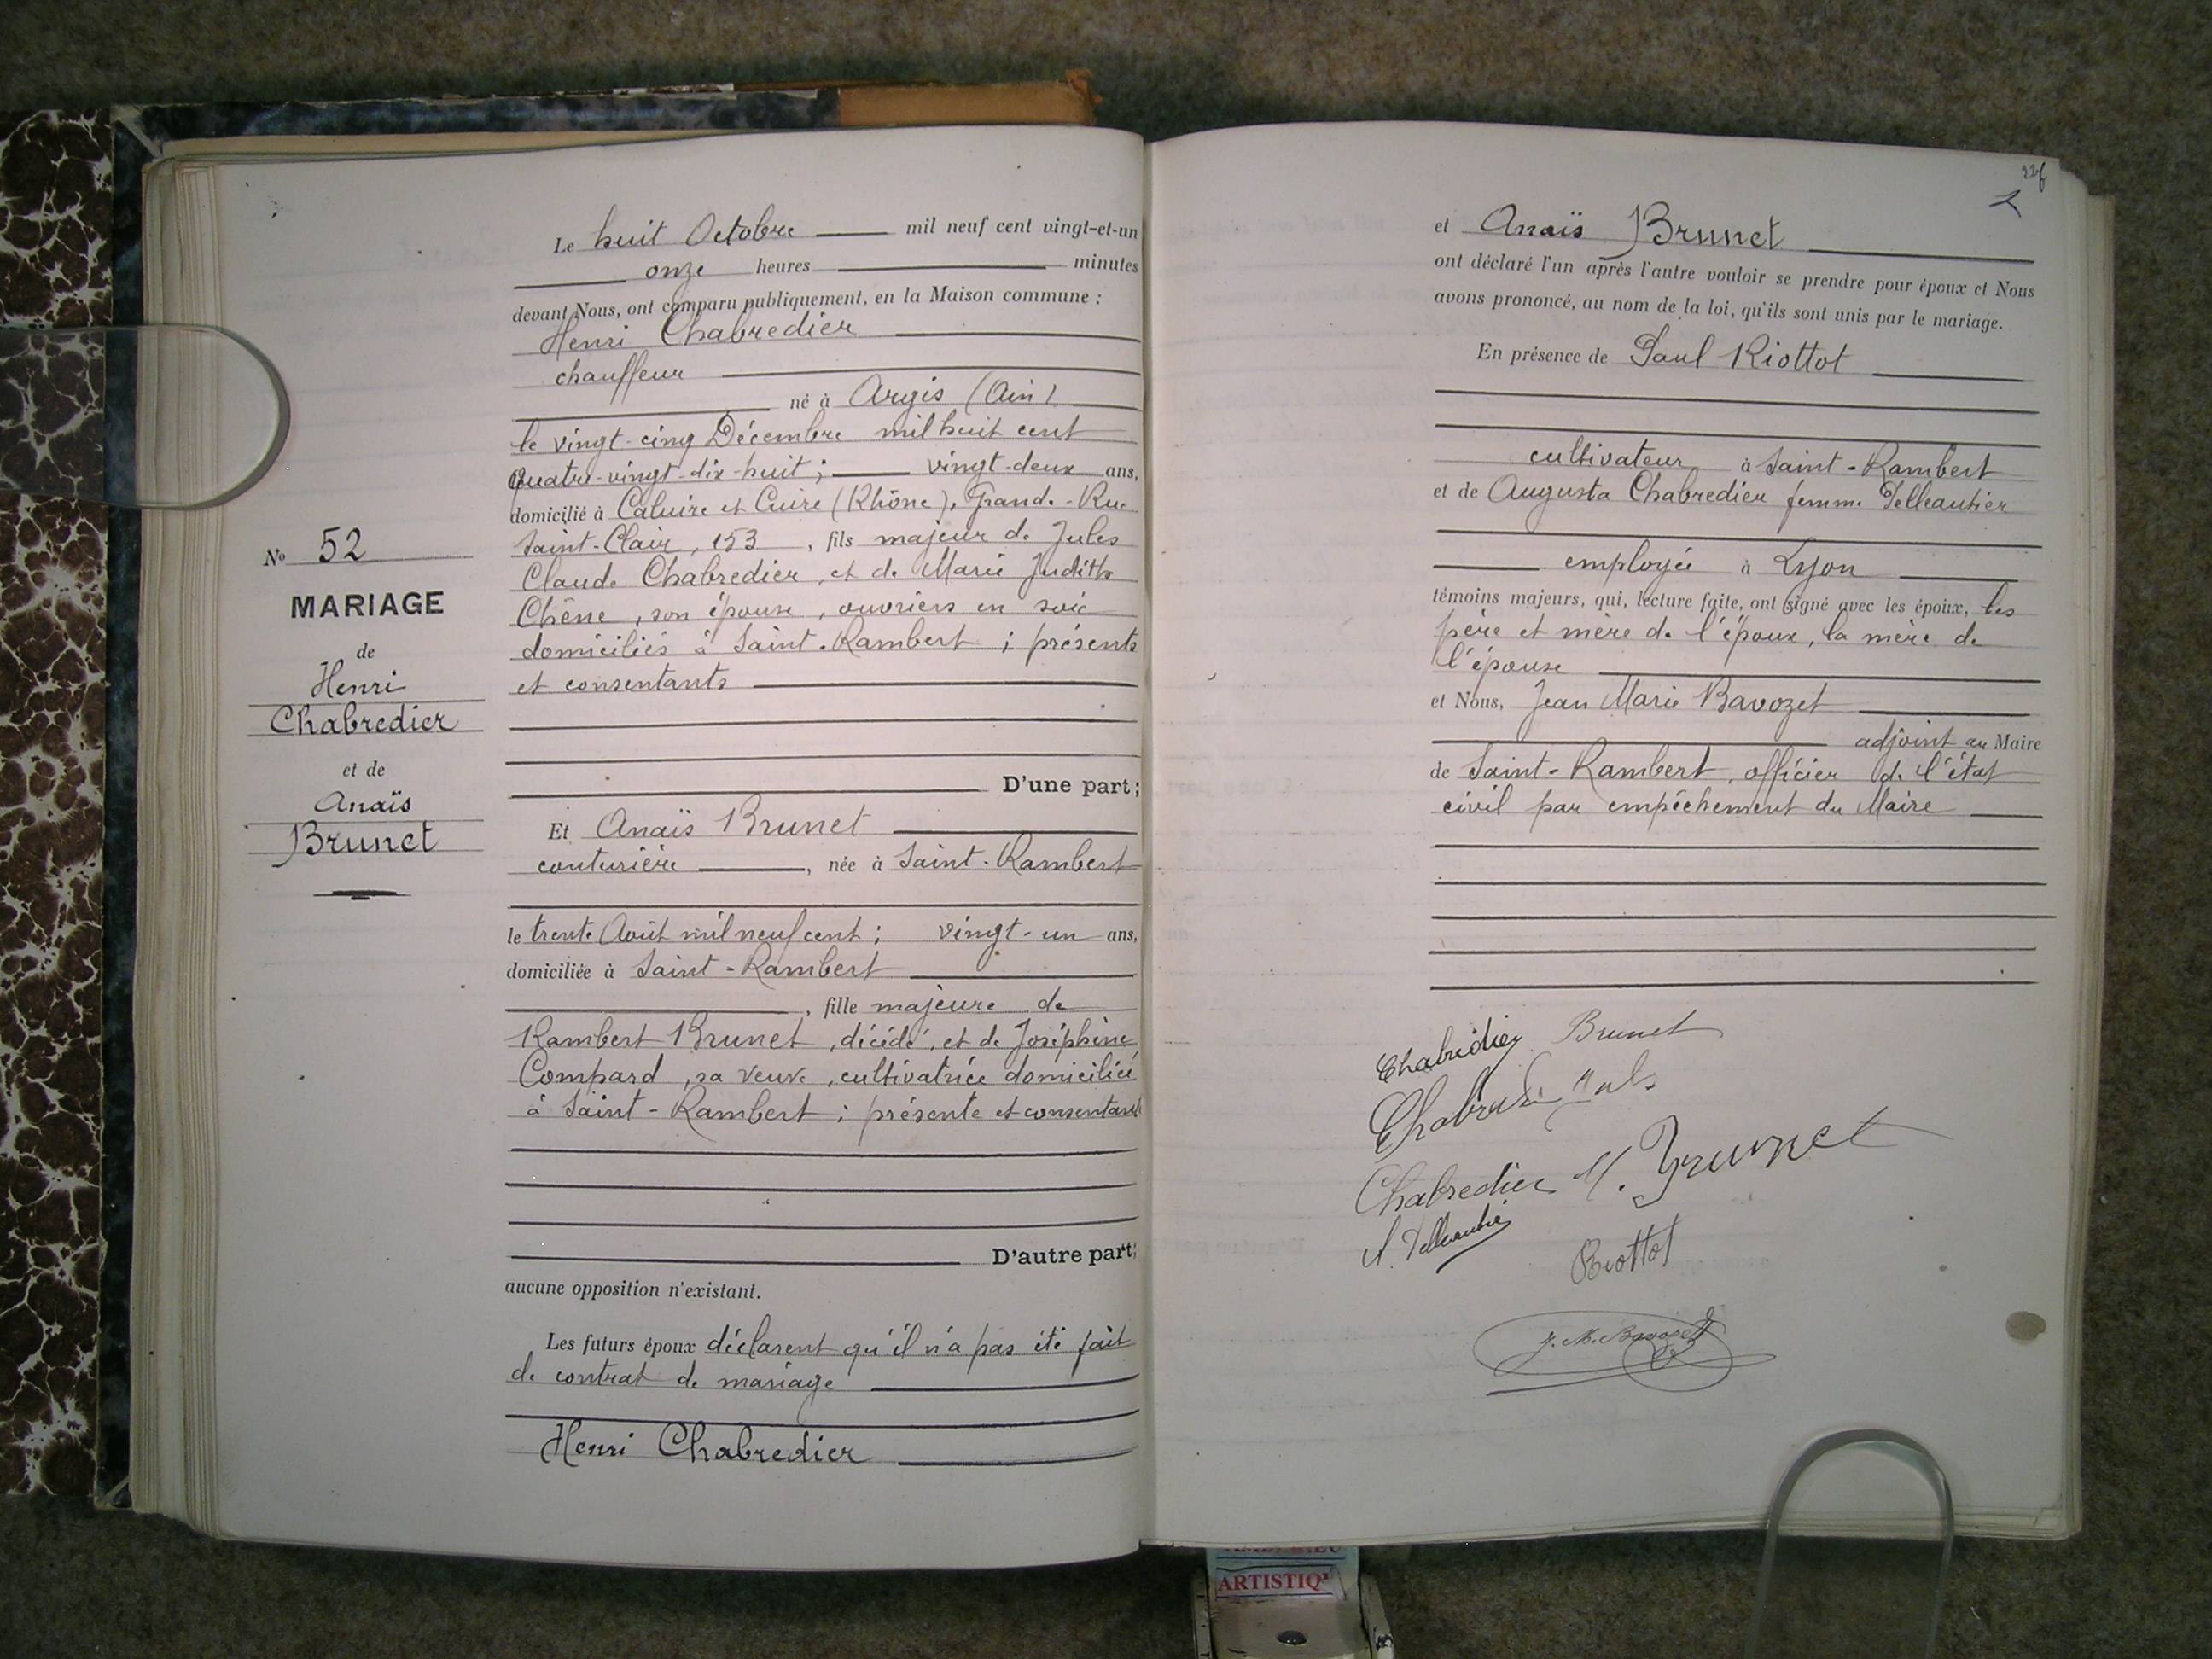 Le huit Octobre mil neuf cent vingt-et-un
onze heures minutes
devant Nous, ont comparu publiquement, en la Maison commune :
Henri Chabredier
chauffeur
né à Argis (Ain)
le vingt-cinq Décembre mil huit cent
quatre-vingt-dix-huit ; vingt-deux ans,
domicilié à Caluire et Cuire (Rhône), Grande-Rue
Saint-Clair, 153, fils majeur de Jules
Claude Chabredier, et de Marie Judith
Chêne, son épouse, ouvriers en soie
domiciliés à Saint-Rambert ; présents
et consentants
D'une part ;
Et Anaïs Brunet
couturière, née à Saint-Rambert
le trente Août mil neuf cent ; vingt-un ans,
domiciliée à Saint-Rambert
, fille majeure de
Rambert Brunet, décédé, et de Joséphine
Compard, sa veuve, cultivatrice domiciliée
à Saint-Rambert ; présente et consentante
D'autre part;
aucune opposition n'existant.
Les futurs époux déclarent qu'il n'a pas été fait
de contrat de mariage
Henri Chabredier
No 52
MARIAGE
de
Henri
Chabredier
et de
Anaïs
Brunet
et Anaïs Brunet
ont déclaré l'un après l'autre vouloir se prendre pour époux et Nous
avons prononcé, au nom de la loi, qu'ils sont unis par le mariage.
En présence de Paul Riottot
cultivateur à Saint-Rambert
et de Augusta Chabredier femme Pelleautier
employée à Lyon
témoins majeurs, qui, lecture faite, ont signé avec les époux, les
père et mère de l'époux, la mère de
l'épouse
et Nous, Jean Marie Bavozet
adjoint au Maire
de Saint-Rambert, officier de l'état
civil par empêchement du Maire
Chabredier Brunet
Chabredier Jules
Chabredier M. Brunet
A. Pelleautier
Riottot
J. M. Bavozet
ARTISTIQ